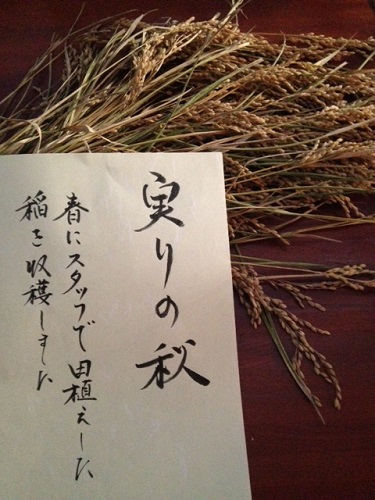 実りの秋
春にスタッフで田植えした
稲を収穫しました